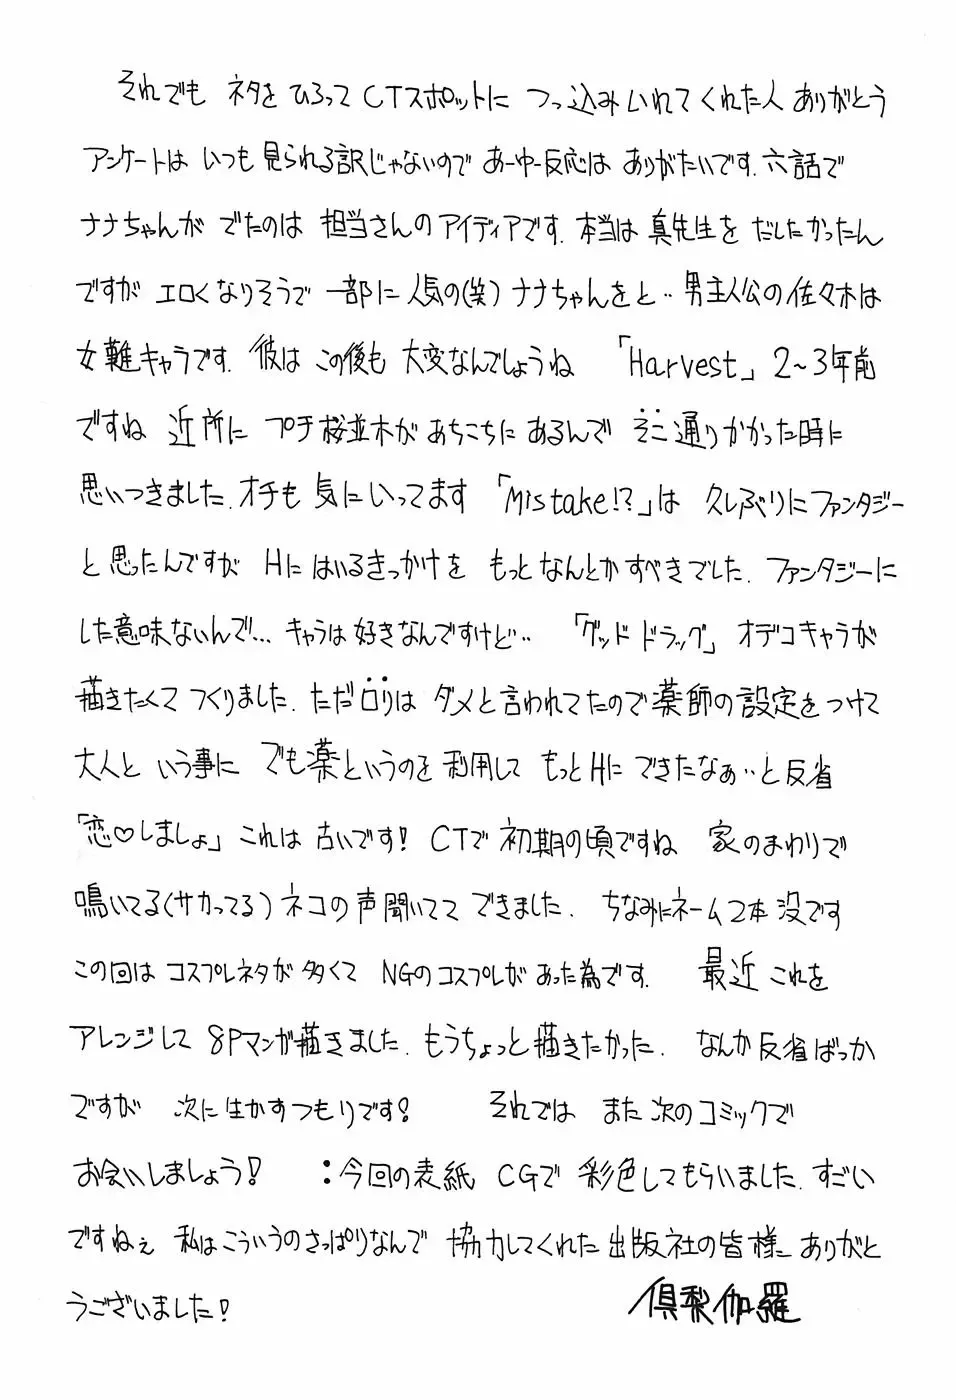 それでも ネタを ひろって CTスポットに つっ込みいれてくれた人 ありがとう
アンケートは いつも見られる訳じゃないので あーゆー反応は ありがたいです. 六話で
ナナちゃんが でたのは 担当さんのアイディアです. 本当は 真先生を だしたかったん
ですが エロくなりそうで 一部に人気の(笑) ナナちゃんをと‥ 男主人公の佐々木は
女難キャラです. 彼は この後も 大変なんでしょうね 「Harvest」 2〜3年前
ですね 近所に プチ桜並木が あちこちに あるんで そこ通りかかった時に
思いつきました. オチも 気にいってます 「Mistake!?」は 久しぶりにファンタジー
と思ったんですが Hに はいるきっかけを もっとなんとかすべきでした. ファンタジーに
した意味ないんで!… キャラは好きなんですけど‥ 「グッド ドラッグ」 オデコキャラが
描きたくて つくりました. ただロリは ダメと言われてたので 薬師の設定をつけて
大人と いう事に でも薬というのを 利用して もっとHに できたなぁ‥と反省
「恋♡しましょ」 これは 古いです! CTで 初期の頃ですね 家のまわりで
鳴いてる(サカってる) ネコの声聞いてて できました. ちなみにネーム2本没です
この回は コスプレネタが多くて NGのコスプレがあった為です. 最近 これを
アレンジして 8Pマンガ描きました. もうちょっと描きたかった. なんか反省ばっか
ですが 次に生かすつもりです! それでは また次のコミックで
お会いしましょう! :今回の表紙 CGで 彩色してもらいました. すごい
ですねぇ 私はこういうのさっぱりなんで 協力してくれた出版社の皆様 ありがと
うございました!
倶梨伽羅